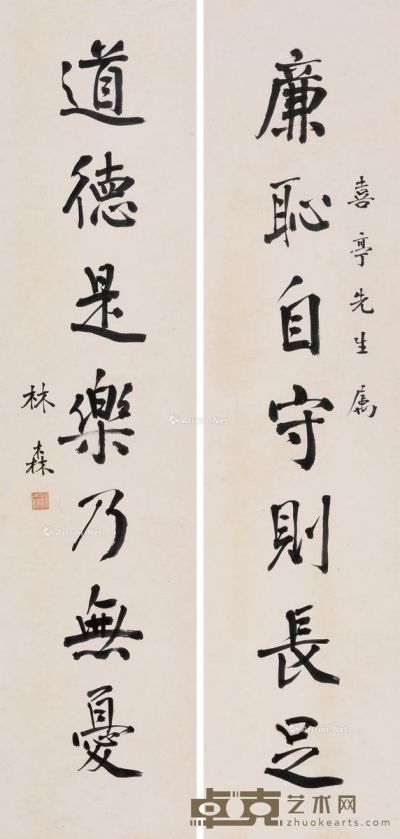 喜亭先生属
廉恥自守則長足
道德是樂乃無憂
林森
卓克艺术网
zhuokearts.com